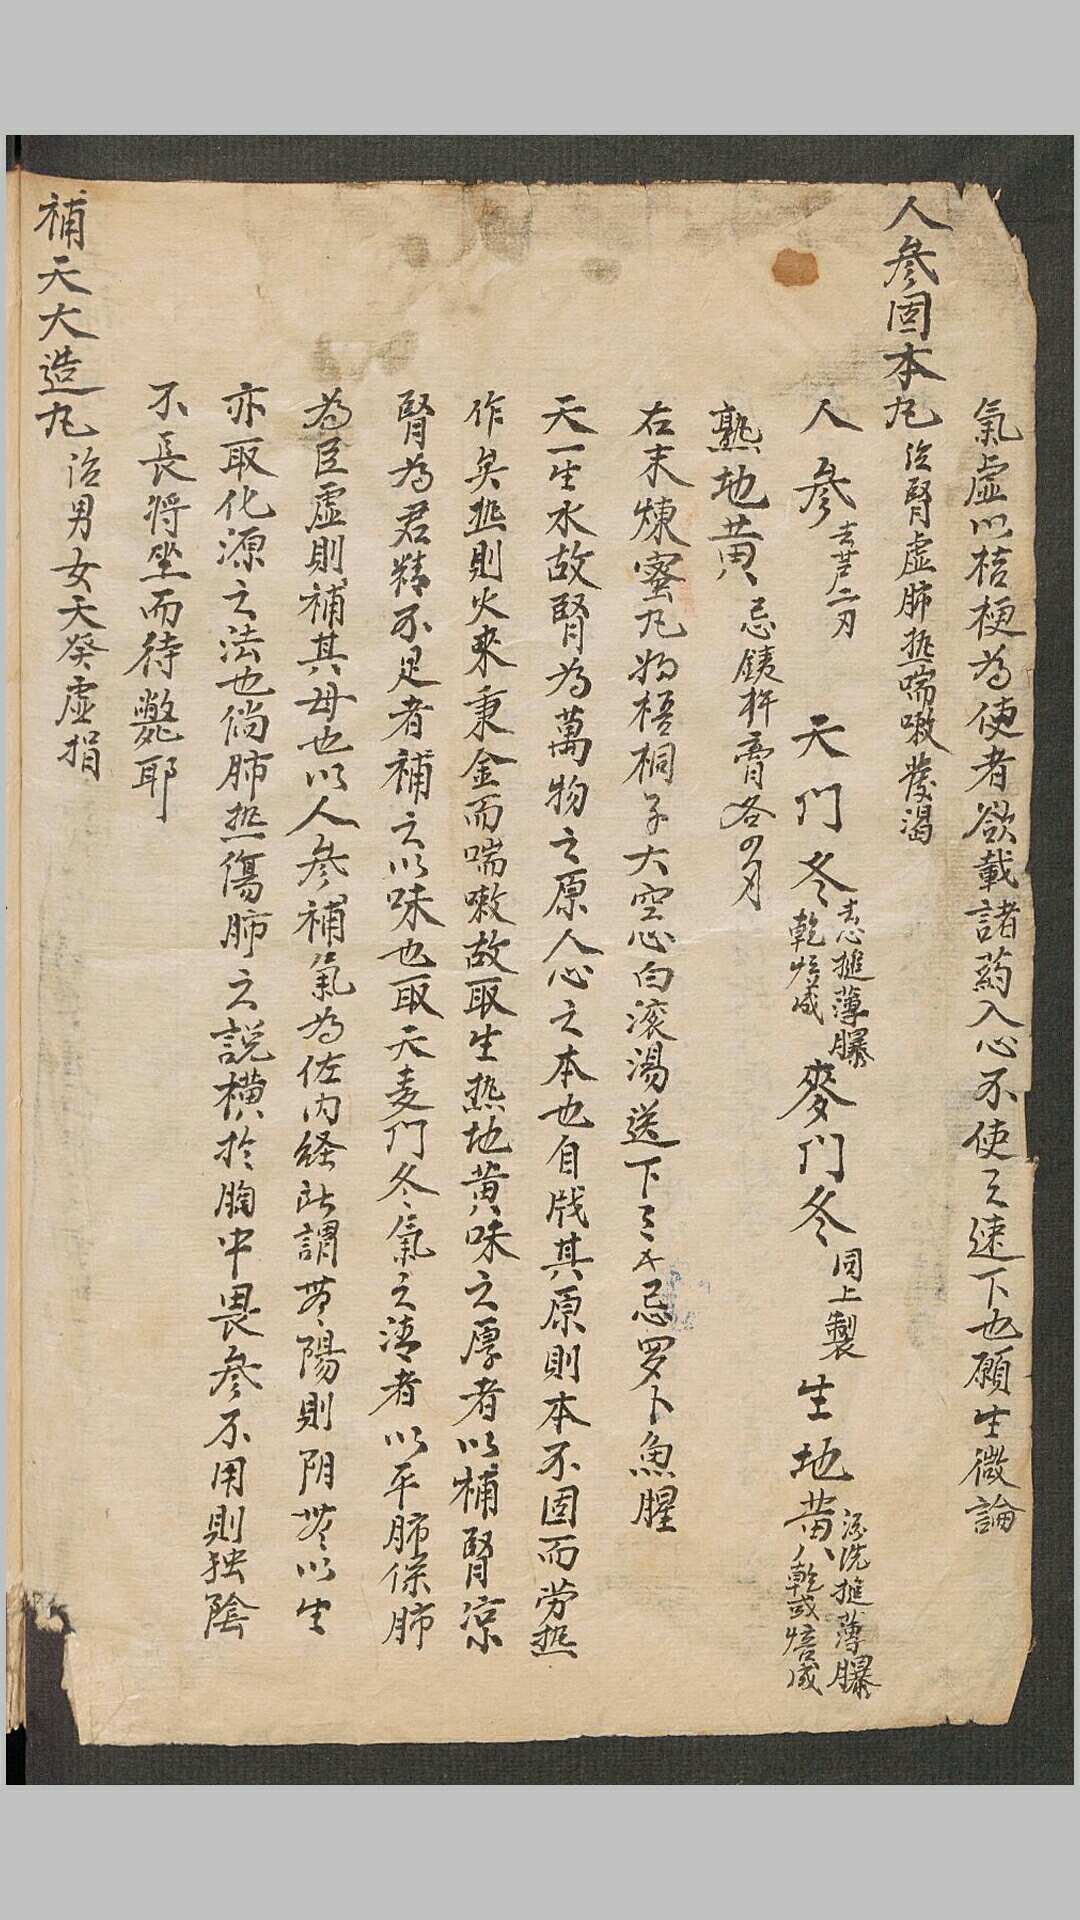 氣虛以桔梗為使者欲載諸药入心不使之速下也願生微論
人參固本丸 治腎虛肺热喘嗽發渴
人參 去芦二刄 天門冬 去心搥薄曝乾焙 麥門冬 同上製 生地黄 酒洗搥薄曝乾或焙
熟地黄 忌鉄杵膏各四刄
右末煉蜜丸如梧桐子大空心白滚湯送下三十忌罗卜魚腥
天一生水故腎為萬物之原人心之本也自戕其原則本不固而劳热
作矣热則火來秉金而喘嗽故取生熟地黄味之厚者以補腎凉
腎為君精不足者補之以味也取天麦門冬氣之清者以平肺保肺
為臣虛則補其母也以人參補氣為佐内経所謂無陽則阴無以生
亦取化源之法也倘肺热傷肺之説横於胸中畏參不用則独陰
不長将坐而待斃耶
補天大造丸 治男女天癸虛損